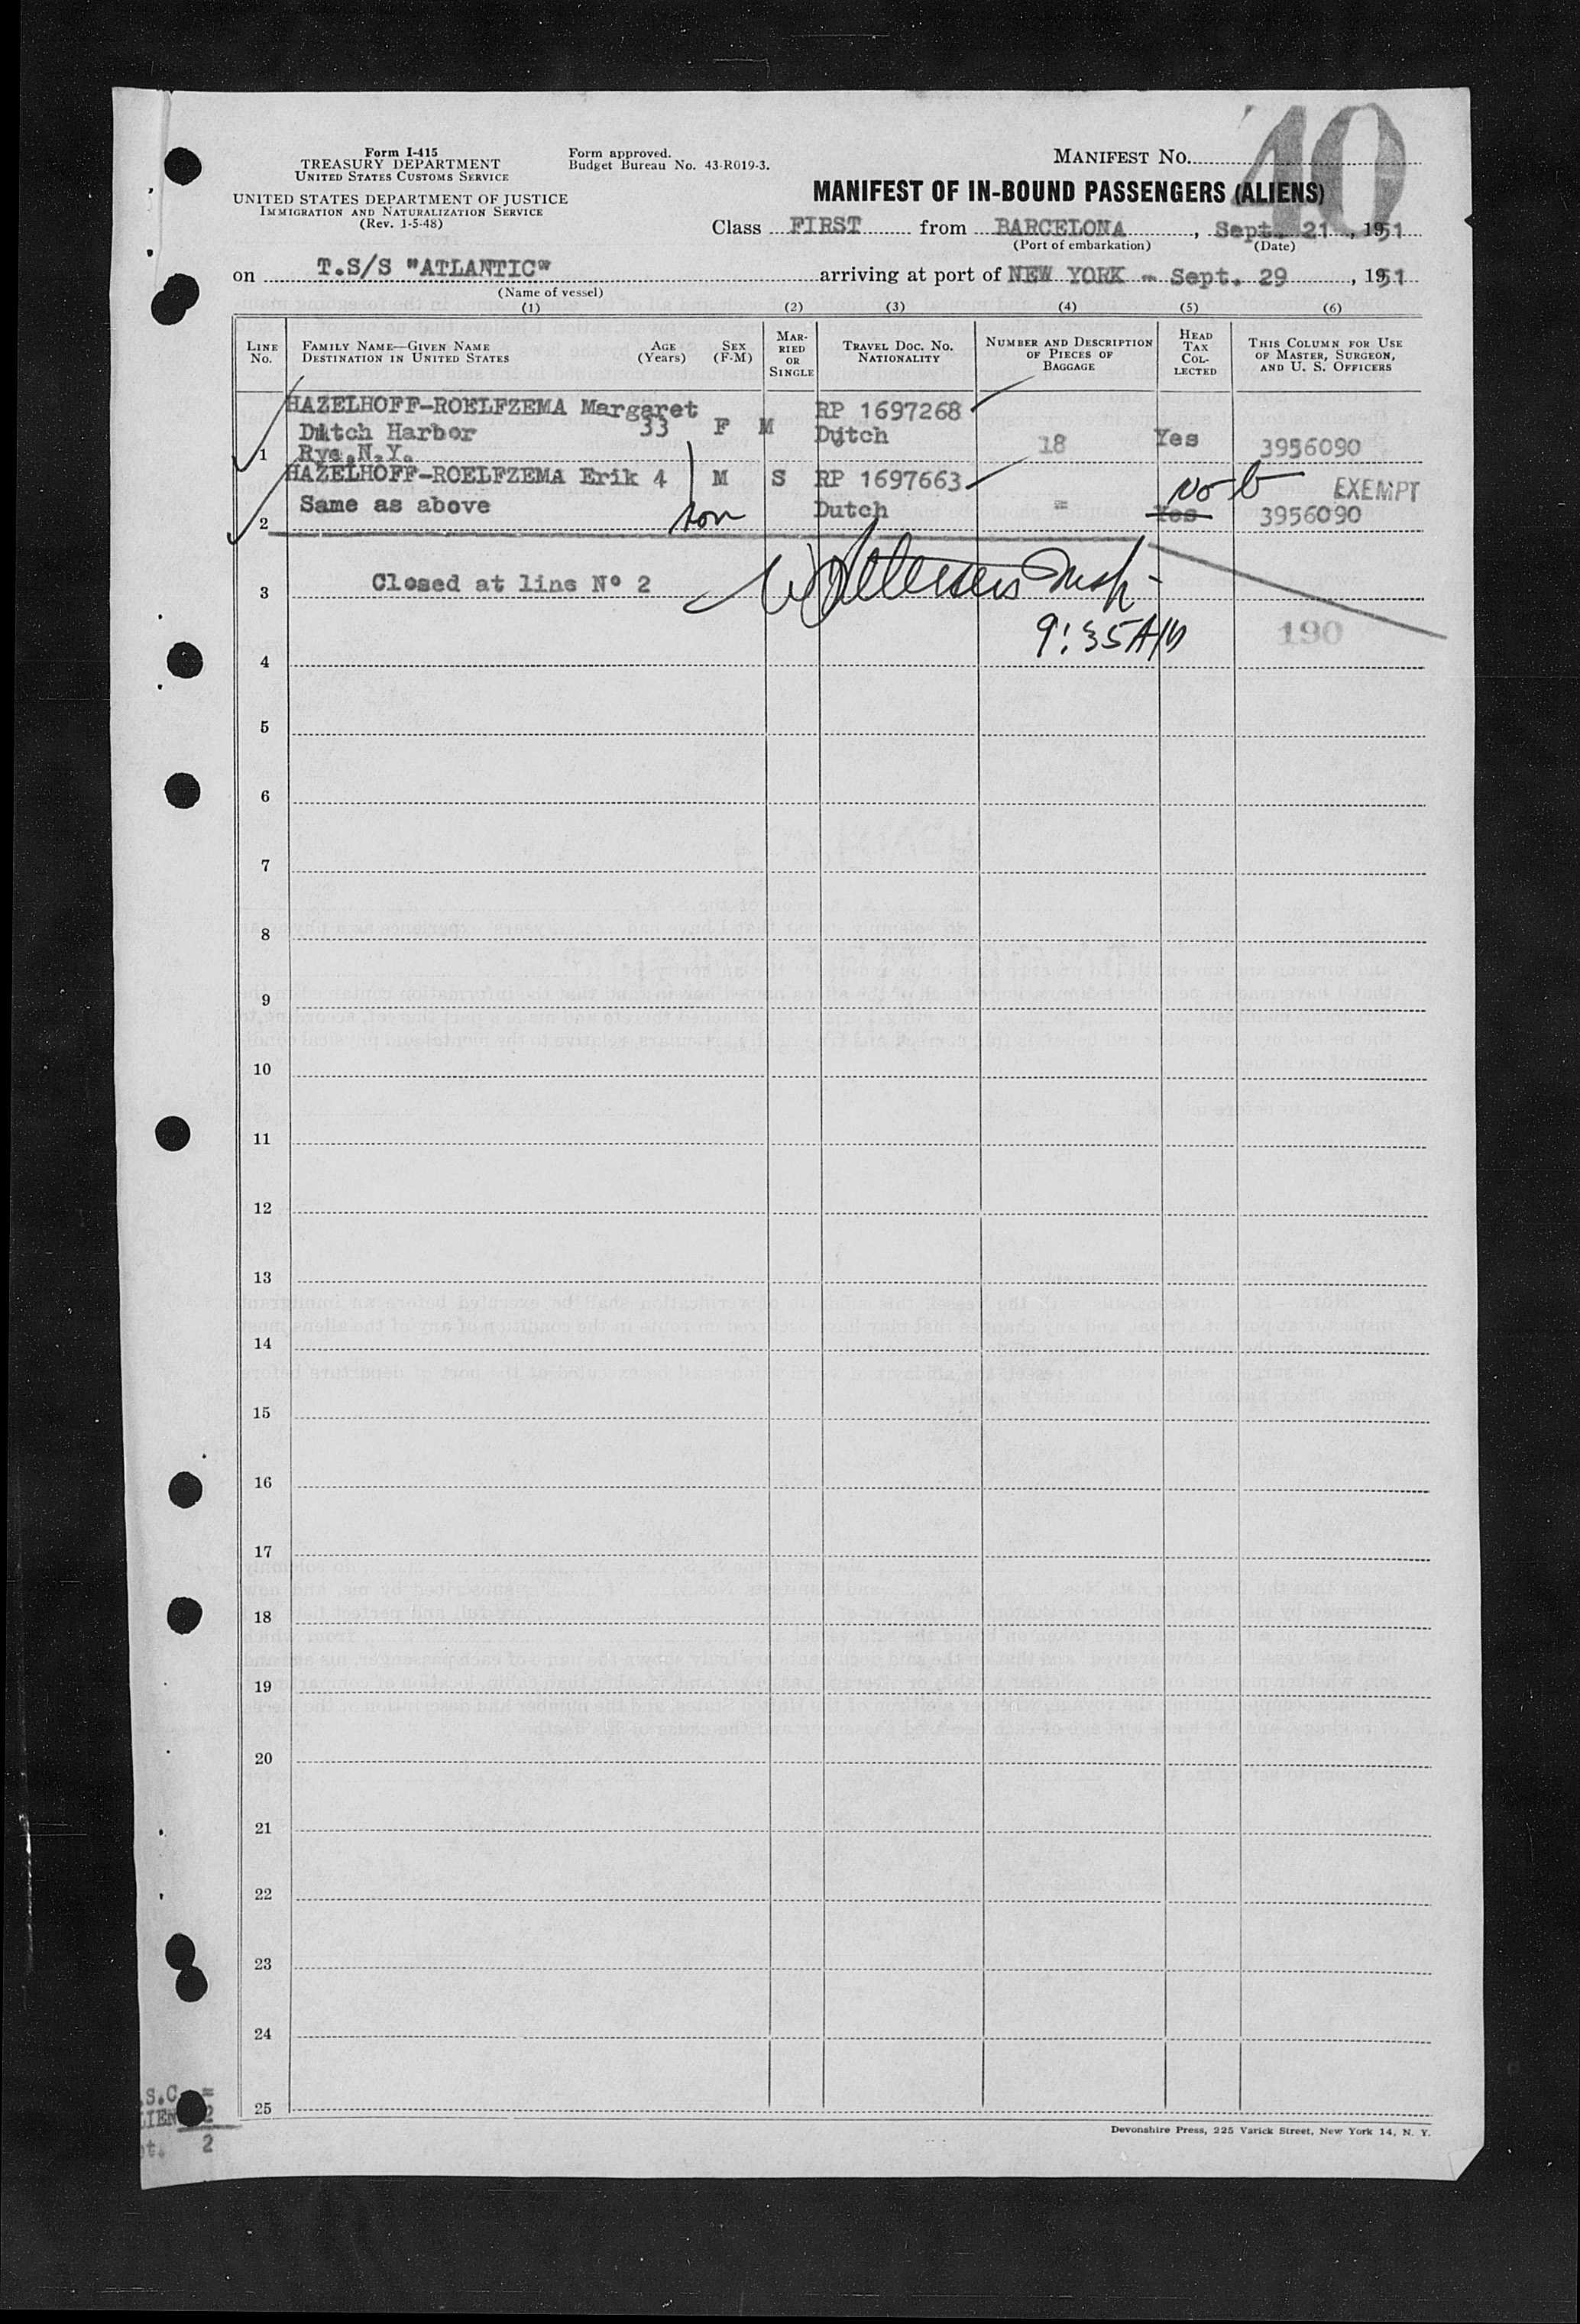 Form I-415
TREASURY DEPARTMENT
UNITED STATES CUSTOMS SERVICE
UNITED STATES DEPARTMENT OF JUSTICE
IMMIGRATION AND NATURALIZATION SERVICE
(Rev. 1-5-48)
Form approved.
Budget Bureau No. 43-R019-3.
MANIFEST No.
40
MANIFEST OF IN-BOUND PASSENGERS (ALIENS)
Class FIRST from BARCELONA, Sept. 21, 1951
(Port of embarkation) (Date)
on T.S/S "ATLANTIC" arriving at port of NEW YORK - Sept. 29, 1951
(Name of vessel)
(1) (2) (3) (4) (5) (6)
LINE No.
FAMILY NAME—GIVEN NAME
DESTINATION IN UNITED STATES
AGE (Years)
SEX (F-M)
MARRIED OR SINGLE
TRAVEL DOC. NO.
NATIONALITY
NUMBER AND DESCRIPTION OF PIECES OF BAGGAGE
HEAD TAX COLLECTED
THIS COLUMN FOR USE OF MASTER, SURGEON, AND U. S. OFFICERS
HAZELHOFF-ROELFZEMA Margaret RP 1697268
Dutch Harbor 33 F M Dutch 18 Yes 3956090
1 Rye.N.Y.
HAZELHOFF-ROELFZEMA Erik 4 M S RP 1697663 No EXEMPT
Same as above son Dutch = Yes 3956090
2
3 Closed at line Nº 2
9:35 AM
190
4
5
6
7
8
9
10
11
12
13
14
15
16
17
18
19
20
21
22
23
24
25
.S.C. =
LIEN 2
t. 2
Devonshire Press, 225 Varick Street, New York 14, N. Y.